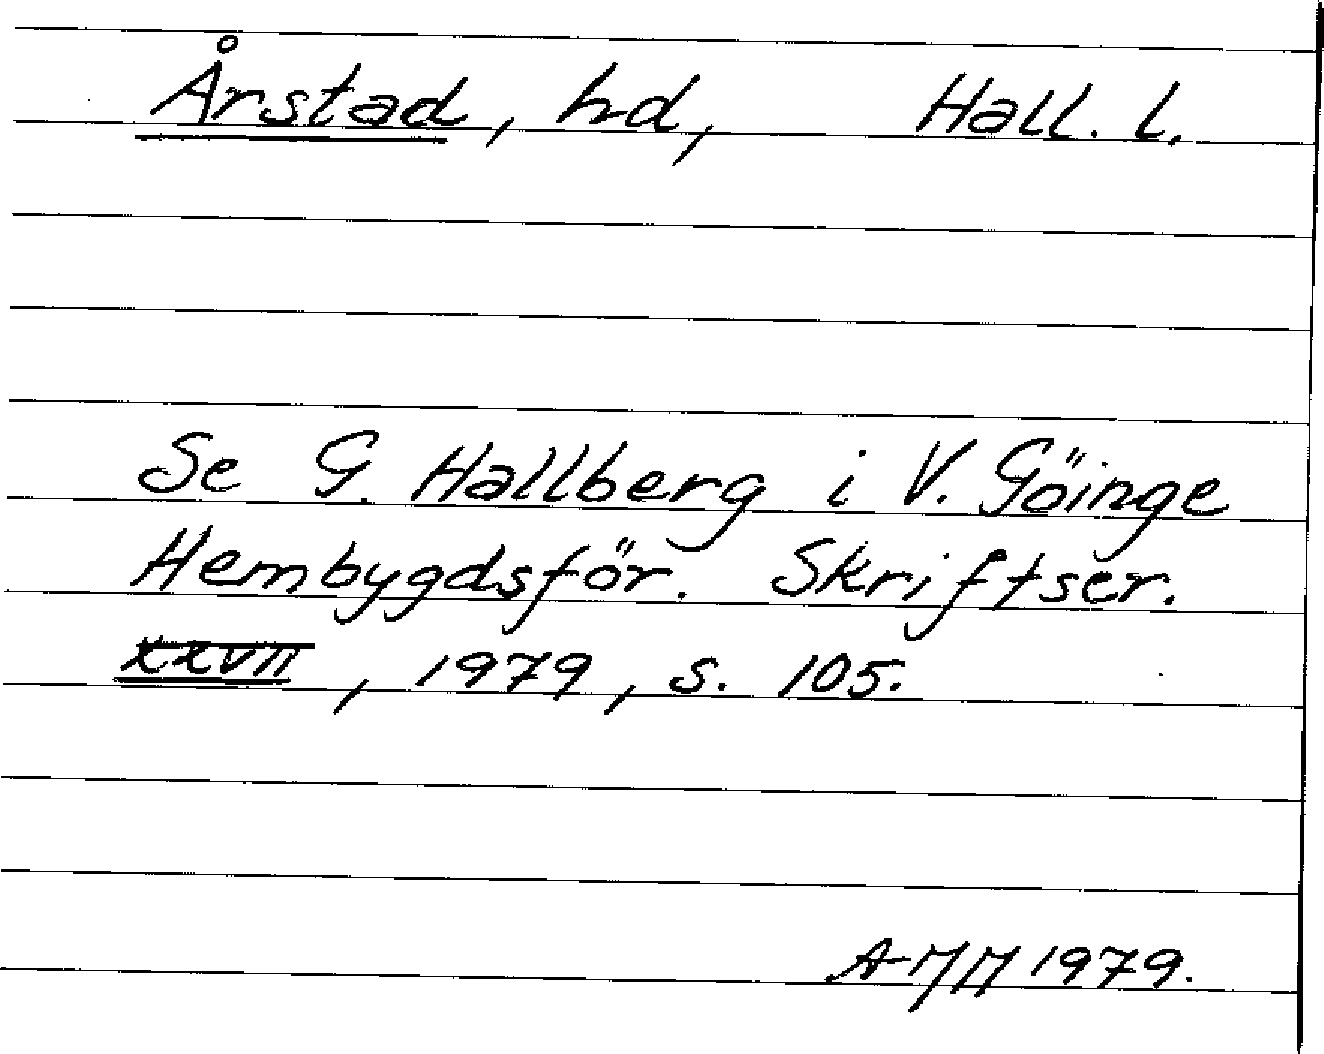 Årstad, hd, Hall. l.
Se G. Hallberg i V. Göinge
Hembygdsför. Skriftser.
XXVII, 1979, s. 105.
1979.